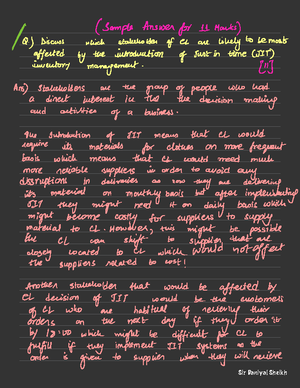 (Sample Answer for 11 Marks)
Q) Discuss which stakeholder of CL are likely to be most
affected by the introduction of Just in time (JIT)
inventory management. [11]
Ans) Stakeholders are the group of people who had
a direct interest in the decision making
and activities of a business.
The Introduction of JIT means that CL would
require its materials for clothes on more frequent
basis which means that CL would need much
more reliable suppliers in order to avoid any
disruptions in deliveries as now they are delivering
its material on monthly basis but after implementing
JIT they might need it on daily basis which
might become costly for suppliers to supply
material to CL. However, this might be possible
the CL can shift to suppliers that are
closely located to CL which would not affect
the suppliers related to cost!
Another stakeholder that would be affected by
CL decision of JIT would be the customers
of CL who are habitual of recieving their
orders on the next day if they order it
by 18:00 which might be difficult for CL to
fulfill if they implement JIT systems as the
order is given to supplier when they will recieve
Sir Daniyal Sheikh